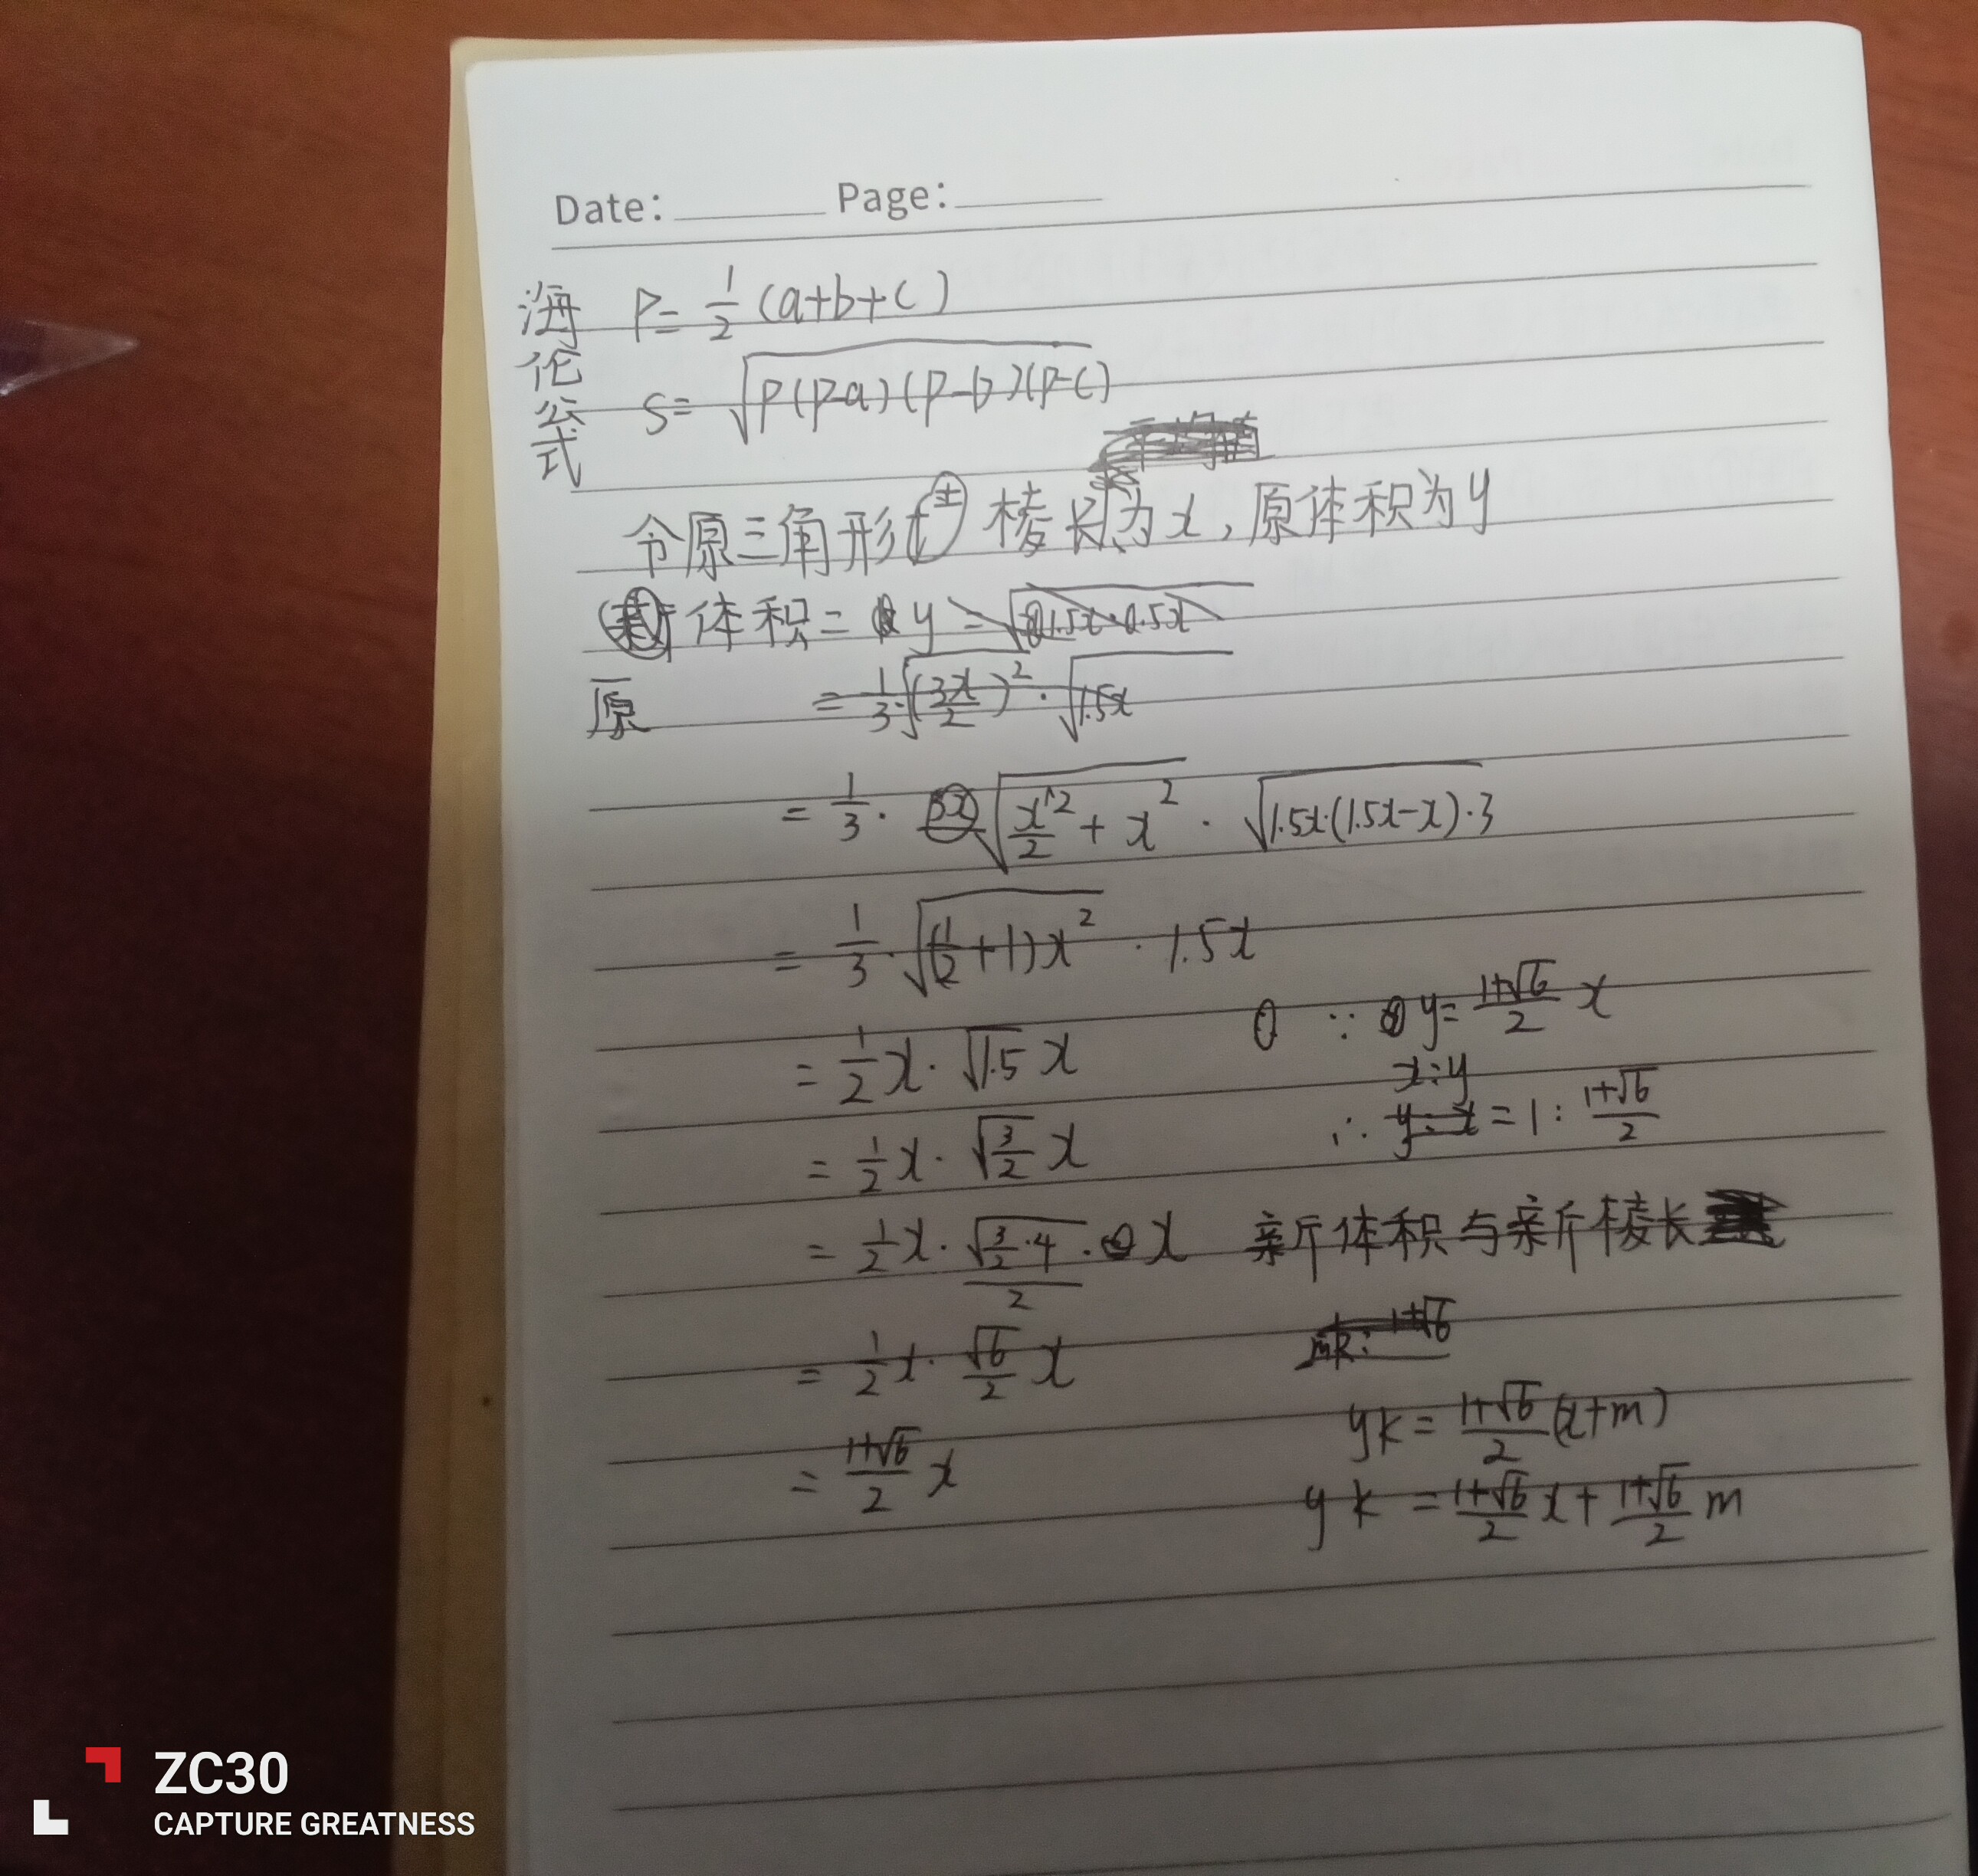 Date: Page:
海伦公式
P= 1/2 (a+b+c)
S= √(P(P-a)(P-b)(P-c))
令原三角形 棱长为x,原体积为y
原体积= y
= 1/3·√(3x/2)²·√1.5x
= 1/3·√(x²/2 + x²)·√(1.5x·(1.5x-x)·3)
= 1/3·√((1/2+1)x²)·1.5x
= 1/2 x·√1.5 x
= 1/2 x·√(3/2) x
= 1/2 x·√(3/2·4)/2·x
= 1/2 x·√6/2 x
= (1+√6)/2 x
∵ y= (1+√6)/2 x
x:y
∴ =1:(1+√6)/2
新体积与新棱长
yk= (1+√6)/2 (x+m)
yk = (1+√6)/2 x+ (1+√6)/2 m
ZC30
CAPTURE GREATNESS